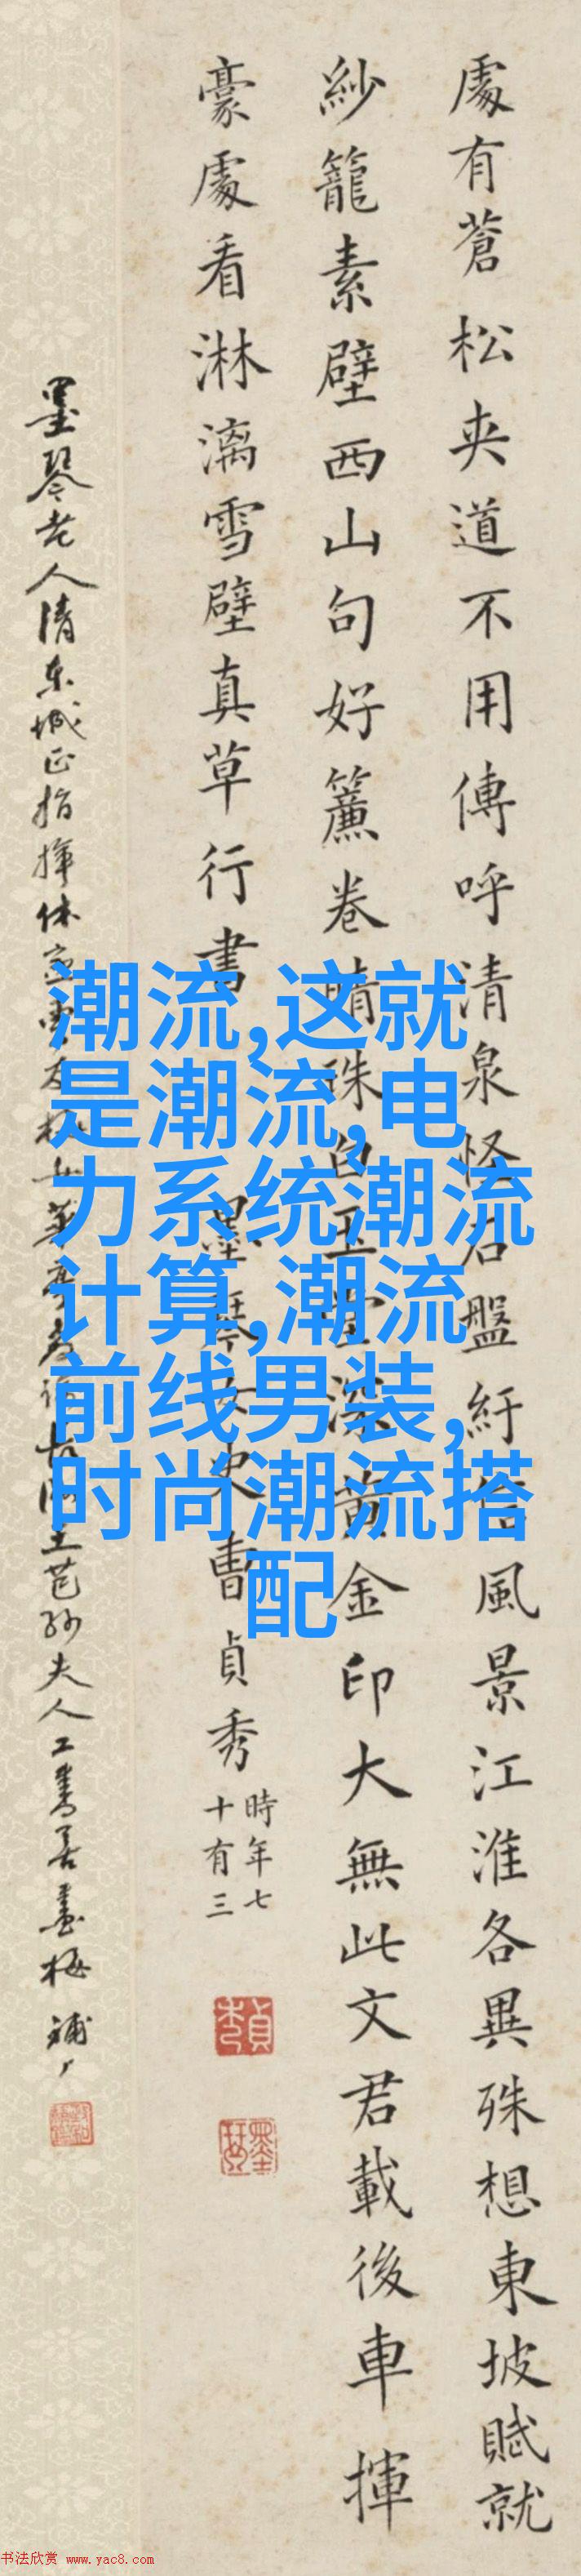 處有蒼松夾道不用傳呼清泉怪石盤紆信風景江淮各異殊想東坡賦就
紗籠素壁西山句好簾卷晴珠白玉堂深黃金印大無此文君載後車揮
豪處看淋漓雪壁真草行書
墨琴女史曹貞秀
時年七
十有三
貞秀
墨琴
墨琴老人清東城正指揮
王芑孫夫人工書善畫梅
潮流,这就
是潮流,电
力系统潮流
计算,潮流
前线男装,
时尚潮流搭
配
书法欣赏 www.yac8.com